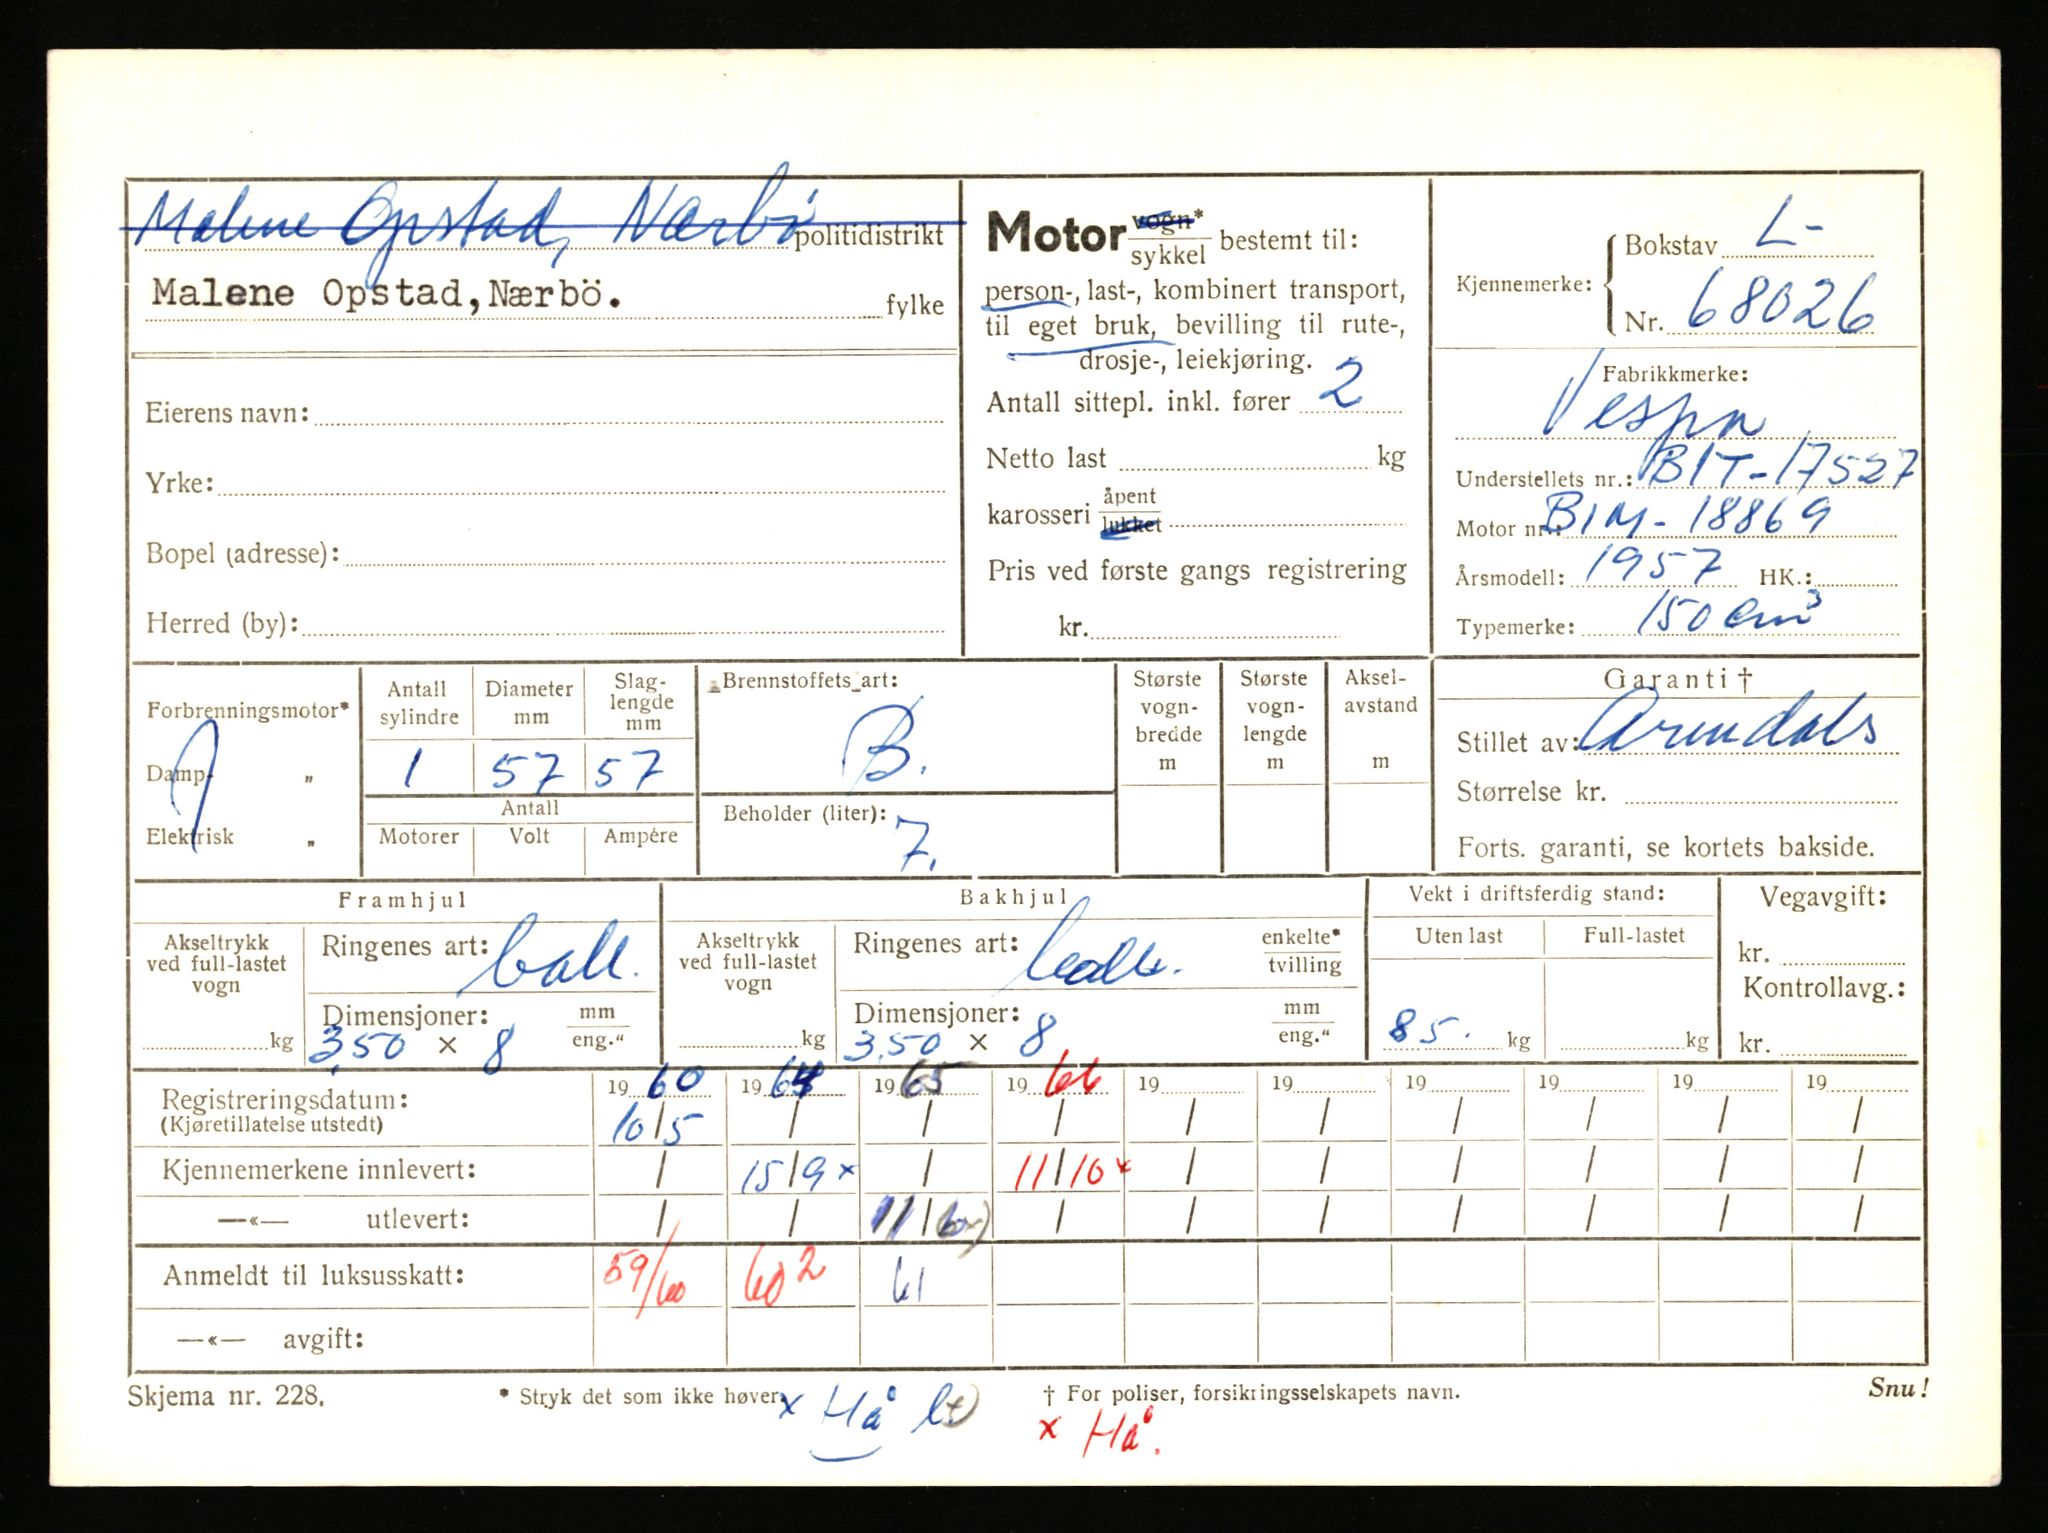 Malene Opstad, Nærbø politidistrikt
Malene Opstad, Nærbö. fylke
Eierens navn:
Yrke:
Bopel (adresse):
Herred (by):
Motor vogn* / sykkel bestemt til:
person-, last-, kombinert transport,
til eget bruk, bevilling til rute-,
drosje-, leiekjøring.
Antall sittepl. inkl. fører 2
Netto last kg
karosseri åpent / lukket
Pris ved første gangs registrering
kr.
Kjennemerke: Bokstav L-
Nr. 68026
Fabrikkmerke:
Vespa
Understellets nr.: B1T-17527
Motor nr.: B1M-18869
Årsmodell: 1957 HK.:
Typemerke: 150 cm³
Forbrenningsmotor*
Damp- „
Elektrisk „
Antall sylindre 1
Diameter mm 57
Slag-lengde mm 57
Antall
Motorer Volt Ampére
Brennstoffets art:
B.
Beholder (liter):
7.
Største vogn-bredde m
Største vogn-lengde m
Aksel-avstand m
Garanti †
Stillet av: Arendals
Størrelse kr.
Forts. garanti, se kortets bakside.
Framhjul
Akseltrykk ved full-lastet vogn
kg
Ringenes art: ball.
Dimensjoner: mm / eng."
3,50 × 8
Bakhjul
Akseltrykk ved full-lastet vogn
kg
Ringenes art: ball. enkelte* / tvilling
Dimensjoner: mm / eng."
3.50 × 8
Vekt i driftsferdig stand:
Uten last Full-lastet
85. kg kg
Vegavgift:
kr.
Kontrollavg.:
kr.
19 60 19 64 19 65 19 66 19 19 19 19 19 19
Registreringsdatum: 10/5 / / / / / / / / /
(Kjøretillatelse utstedt)
Kjennemerkene innlevert: / 15/9 x / 11/10 x / / / / / /
—«— utlevert: / / 11/6 x) / / / / / / /
Anmeldt til luksusskatt: 59/60 60 2 61
—«— avgift:
Skjema nr. 228. * Stryk det som ikke høver. † For poliser, forsikringsselskapets navn. Snu!
x Hå
x Hå.